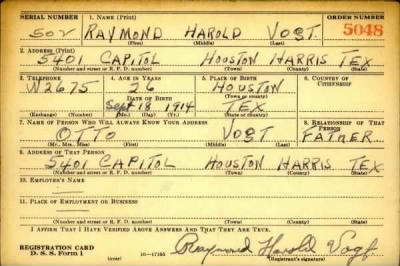 SERIAL NUMBER 1. NAME (Print) ORDER NUMBER
502 RAYMOND HAROLD VOGT 5048
(First) (Middle) (Last)
2. ADDRESS (Print)
5401 CAPITOL HOUSTON HARRIS TEX
(Number and street or R. F. D. number) (Town) (County) (State)
3. TELEPHONE 4. AGE IN YEARS 5. PLACE OF BIRTH 6. COUNTRY OF
W2675 26 HOUSTON CITIZENSHIP
DATE OF BIRTH (Town or county)
Sept 18 1914 TEX
(Exchange) (Number) (Mo.) (Day) (Yr.) (State or country)
7. NAME OF PERSON WHO WILL ALWAYS KNOW YOUR ADDRESS 8. RELATIONSHIP OF THAT PERSON
OTTO VOGT FATHER
(Mr., Mrs., Miss) (First) (Middle) (Last)
9. ADDRESS OF THAT PERSON
5401 CAPITOL HOUSTON HARRIS TEX
(Number and street or R. F. D. number) (Town) (County) (State)
10. EMPLOYER'S NAME
11. PLACE OF EMPLOYMENT OR BUSINESS
(Number and street or R. F. D. number) (Town) (County) (State)
I AFFIRM THAT I HAVE VERIFIED ABOVE ANSWERS AND THAT THEY ARE TRUE.
REGISTRATION CARD Raymond Harold Vogt
D. S. S. Form 1 (over) 16-17105 (Registrant's signature)